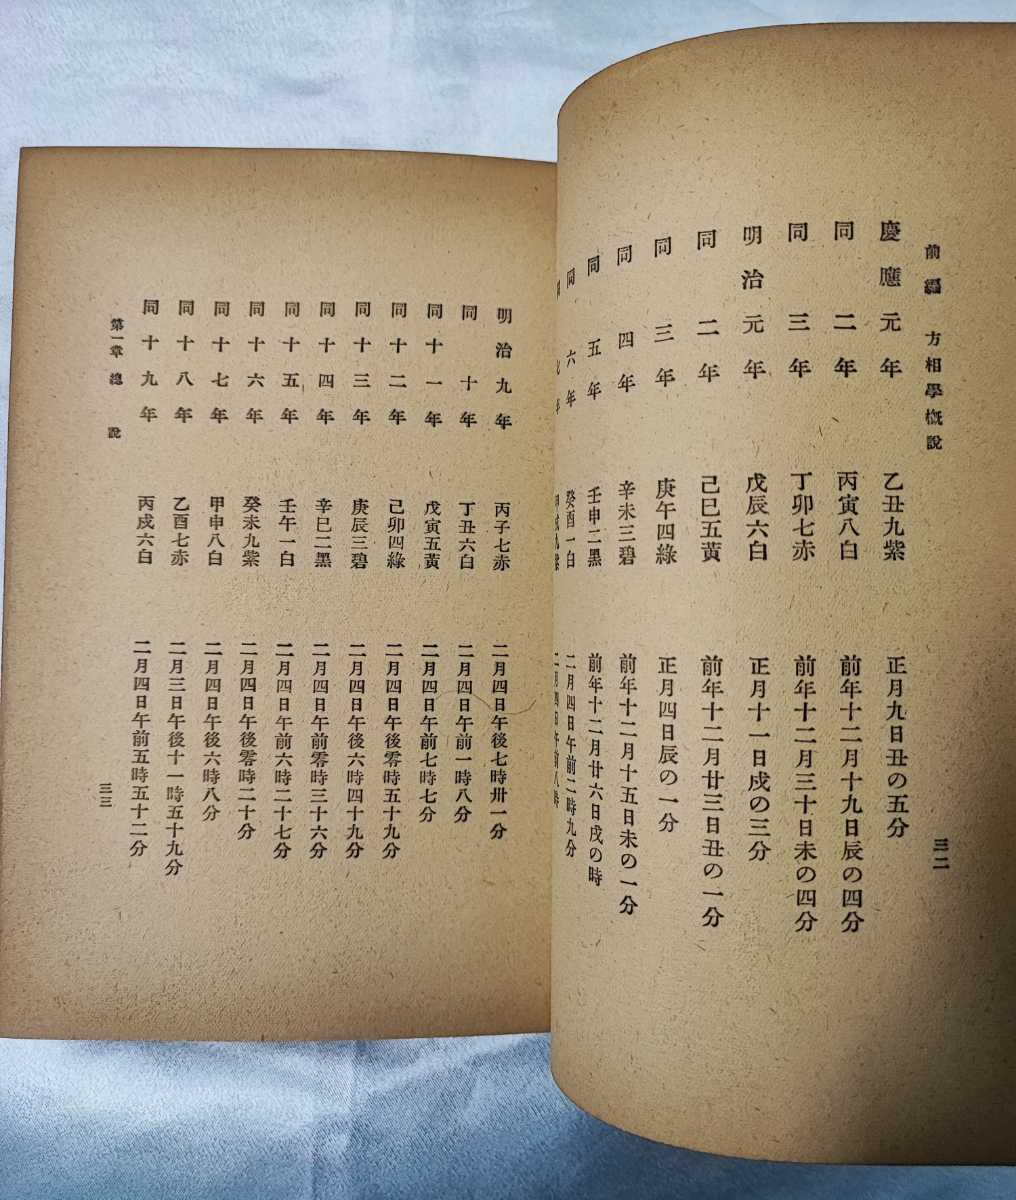 前編 方相學概說 三二
慶應元年 乙丑九紫 正月九日丑の五分
同二年 丙寅八白 前年十二月十九日辰の四分
同三年 丁卯七赤 前年十二月三十日未の四分
明治元年 戊辰六白 正月十一日戌の三分
同二年 己巳五黃 前年十二月廿三日丑の一分
同三年 庚午四綠 正月四日辰の一分
同四年 辛未三碧 前年十二月十五日未の一分
同五年 壬申二黑 前年十二月廿六日戌の時
同六年 癸酉一白 二月四日午前二時九分
同七年 甲戌九紫 二月四日午前八時
明治九年 丙子七赤 二月四日午後七時卅一分
同十年 丁丑六白 二月四日午前一時八分
同十一年 戊寅五黃 二月四日午前七時七分
同十二年 己卯四綠 二月四日午後零時五十九分
同十三年 庚辰三碧 二月四日午後六時四十九分
同十四年 辛巳二黑 二月四日午前零時三十六分
同十五年 壬午一白 二月四日午前六時二十七分
同十六年 癸未九紫 二月四日午後零時二十分
同十七年 甲申八白 二月四日午後六時八分
同十八年 乙酉七赤 二月三日午後十一時五十九分
同十九年 丙戌六白 二月四日午前五時五十二分
第一章 總說 三三